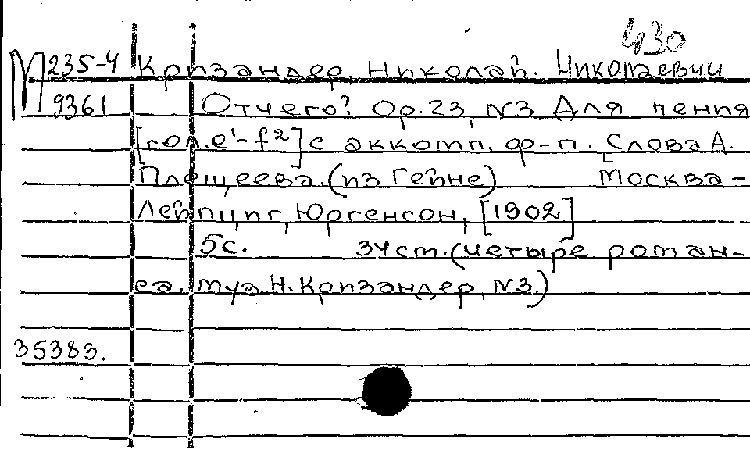 430
М 235-4 Кризандер, Николай Николаевич
9361 Отчего? Ор.23, №3 Для пения
[сол. e¹-f²] с аккомп. ф-п. Слова А.
Плещеева. (из Гейне) Москва-
Лейпциг, Юргенсон, [1902]
5с. 34см. (Четыре роман-
са. муз. Н. Кризандер, №3.)
35383.